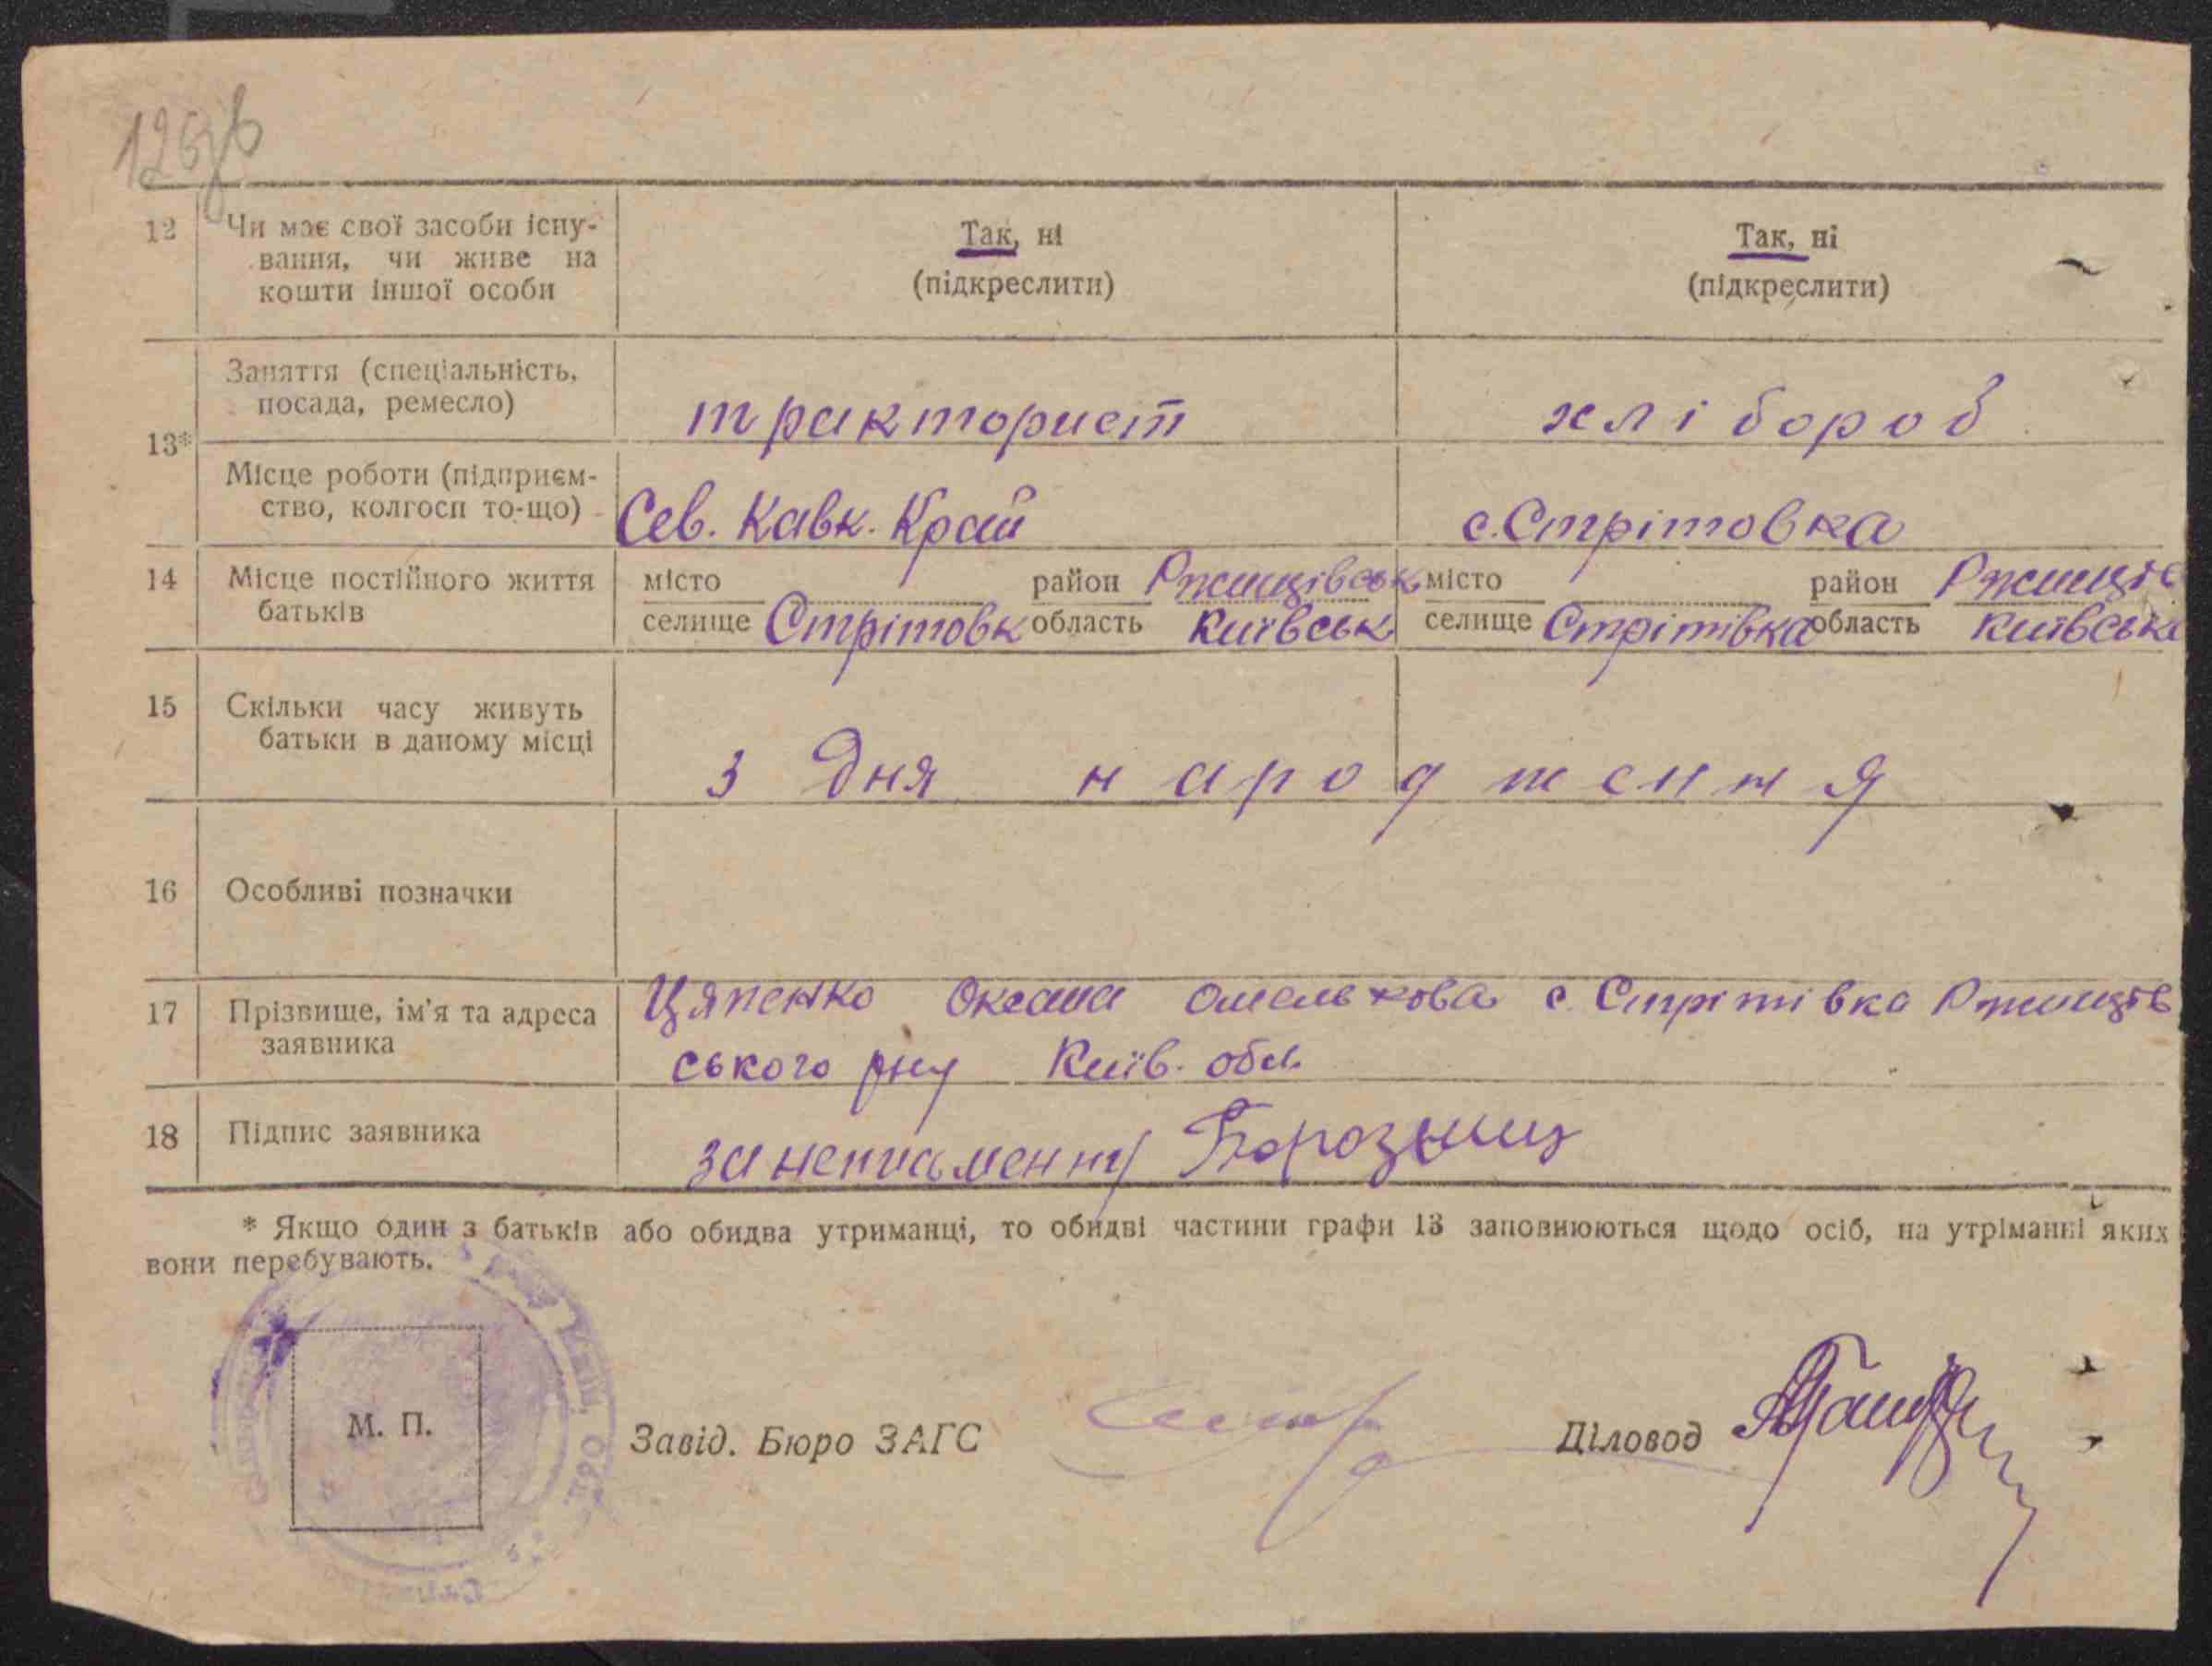 12 Чи має свої засоби існу- Так, ні Так, ні
вання, чи живе на (підкреслити) (підкреслити)
кошти іншої особи
Заняття (спеціальність,
посада, ремесло) тракторист хлібороб
13*
Місце роботи (підприєм-
ство, колгосп то-що) Сев. Кавк. Край с. Стрітовка
14 Місце постійного життя місто район Ржищівськ місто район Ржищів
батьків селище Стрітовк область Київськ селище Стрітівка область Київськ
15 Скільки часу живуть
батьки в даному місці з Дня народження
16 Особливі позначки
17 Прізвище, ім'я та адреса Цяпенко Оксана Омелькова с. Стрітівка Ржищів
заявника ського рну Київ. обл.
18 Підпис заявника за неписьменну
* Якщо один з батьків або обидва утриманці, то обидві частини графи 13 заповнюються щодо осіб, на утріманні яких
вони перебувають.
М. П. Завід. Бюро ЗАГС Діловод